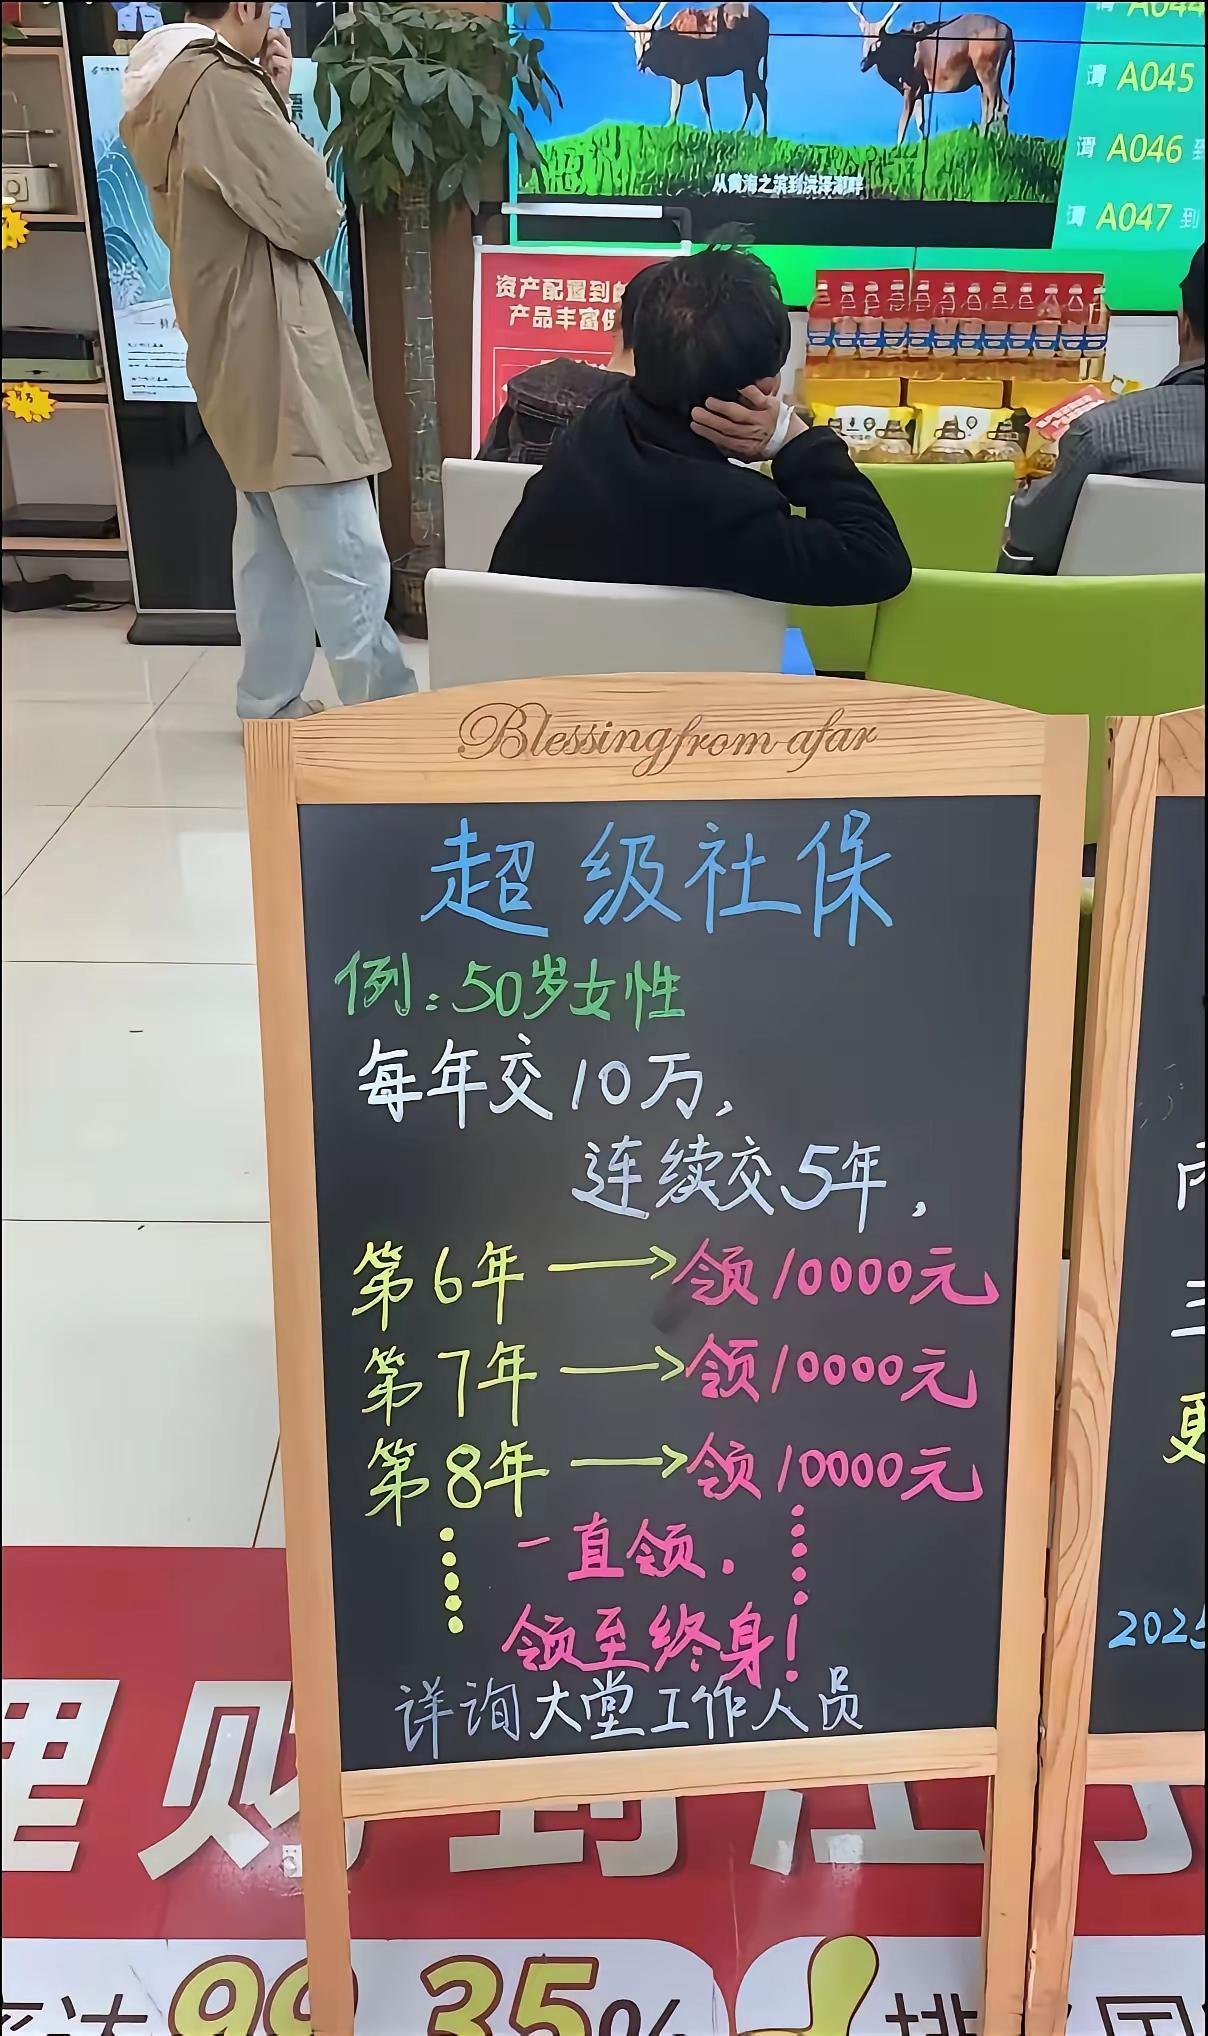 A044
请 A045
请 A046 到
请 A047 到
从黄海之滨到洪泽湖畔
资产配置到
产品丰富
Blessing from afar
超级社保
例:50岁女性
每年交10万,
连续交5年,
第6年 → 领10000元
第7年 → 领10000元
第8年 → 领10000元
一直领.
领至终身!
详询大堂工作人员
三
更
2025
理财到江
99.35%